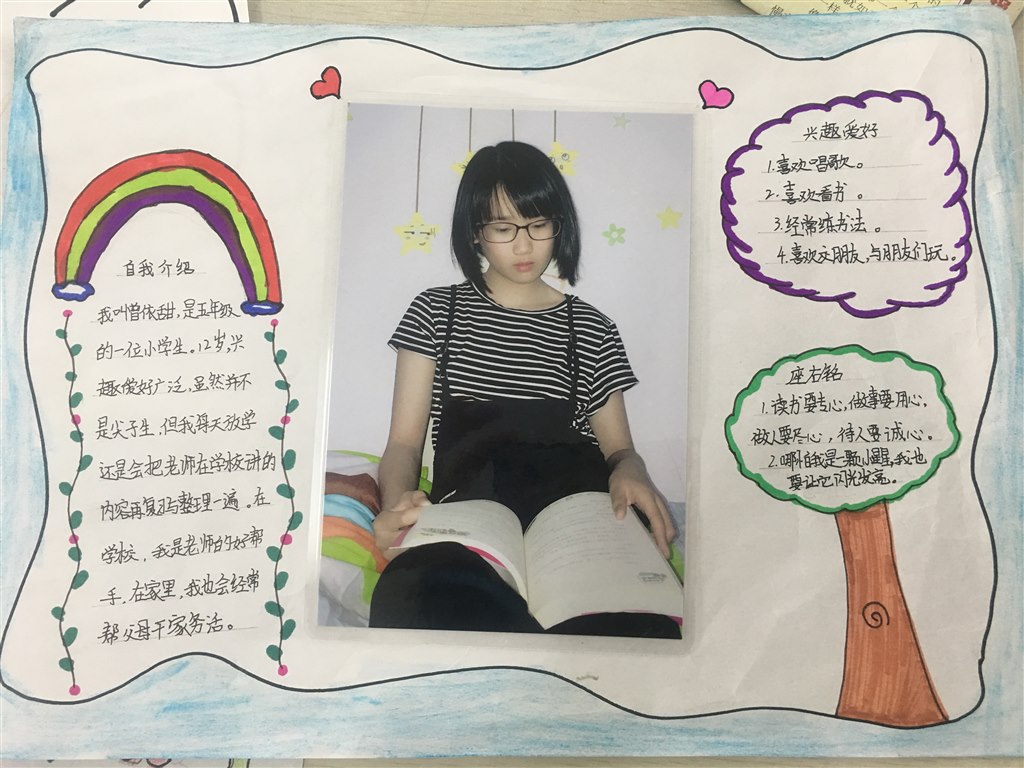 自我介绍
我叫曾依甜,是五年级
的一位小学生。12岁,兴
趣爱好广泛,虽然并不
是尖子生,但我每天放学
还是会把老师在学校讲的
内容再复习与整理一遍。在
学校,我是老师的好帮
手,在家里,我也会经常
帮父母干家务活。
兴趣爱好
1.喜欢唱歌。
2.喜欢看书。
3.经常练书法。
4.喜欢交朋友,与朋友们玩。
座右铭
1.读书要专心,做事要用心,
做人要尽心,待人要诚心。
2.哪怕我是一颗小星星,我也
要让它闪光发亮。